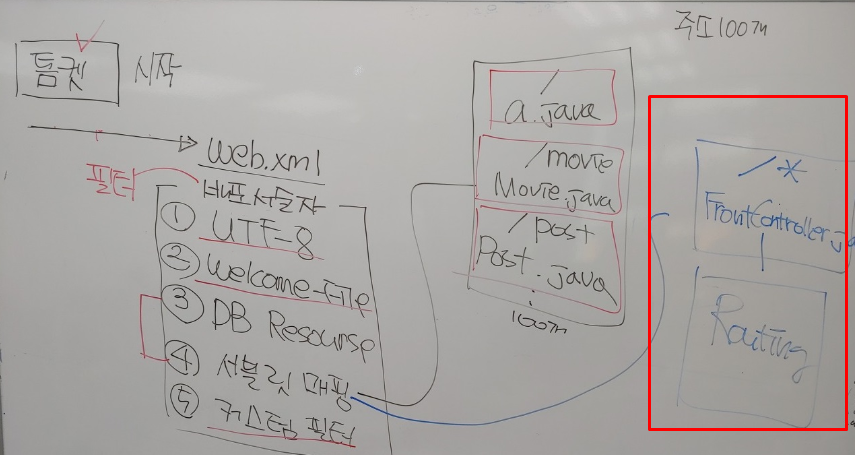 주소100개
톰캣 시작
web.xml
필터
배포서술자
① UTF-8
② Welcome-File
③ DB Resourse
④ 서블릿 매핑
⑤ 커스텀 필터
/
a.java
/movie
Movie.java
/post
Post.java
100개
/*
FrontController.ja
Routing